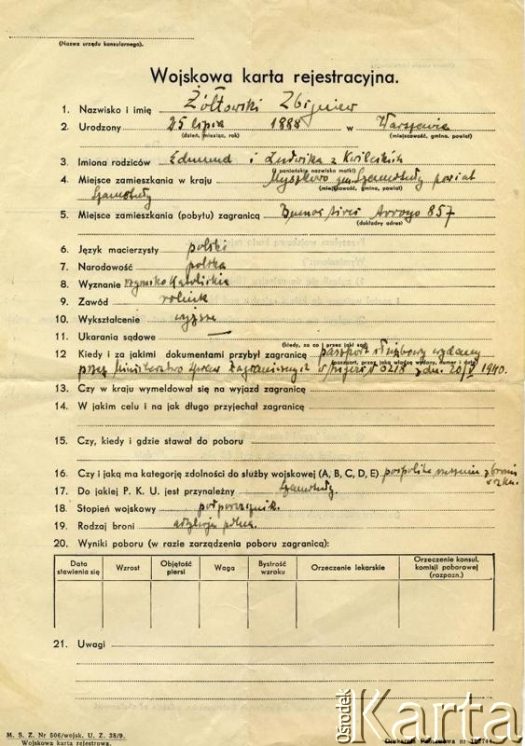 (Nazwa urzędu konsularnego).
Wojskowa karta rejestracyjna.
1. Nazwisko i imię Żółtowski Zbigniew
2. Urodzony 25 lipca 1888 w Warszawie
(dzień, miesiąc, rok) (miejscowość, gmina, powiat)
3. Imiona rodziców Edmund i Ludwika z Kwileckich
(panieńskie nazwisko matki)
4. Miejsce zamieszkania w kraju Myszkowo Szamotuły powiat
(miejscowość, gmina, powiat)
Szamotuły
5. Miejsce zamieszkania (pobytu) zagranicą Buenos Aires Arroyo 857
(dokładny adres)
6. Język macierzysty polski
7. Narodowość polska
8. Wyznanie rzymsko katolickie
9. Zawód rolnik
10. Wykształcenie wyższe
11. Ukarania sądowe —
(kiedy, za co i przez jaki sąd)
12 Kiedy i za jakimi dokumentami przybył zagranicę paszport służbowy wydany
(paszport, przez jaką władzę wydany, numer i data)
przez Ministerstwo Spraw Zagranicznych w Angers 1940.
13. Czy w kraju wymeldował się na wyjazd zagranicę
14. W jakim celu i na jak długo przyjechał zagranicę
15. Czy, kiedy i gdzie stawał do poboru
16. Czy i jaką ma kategorję zdolności do służby wojskowej (A, B, C, D, E) pospolite ruszenie z bronią
17. Do jakiej P. K. U. jest przynależny Szamotuły.
18. Stopień wojskowy podporucznik.
19. Rodzaj broni artylerja polna.
20. Wyniki poboru (w razie zarządzenia poboru zagranicą):
Data stawienia się Wzrost Objętość piersi Waga Bystrość wzroku Orzeczenie lekarskie Orzeczenie konsul. komisji poborowej (rozpozn.)
21. Uwagi
M. S. Z. Nr 506/wojsk. U. Z. 38/9.
Wojskowa karta rejestrowa.
Drukarnia Państwowa nr
Ośrodek
Karta